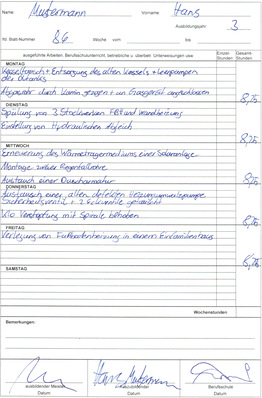 Name: Mustermann Vorname Hans
Ausbildungsjahr: 3
lfd. Blatt-Nummer 86 Woche vom bis
ausgeführte Arbeiten, Berufsschulunterricht, betriebliche u. überbetr. Unterweisungen usw. Einzel-Stunden Gesamt-Stunden
MONTAG
Kesseltausch + Entsorgung des alten Kessels + leerpumpen
der Öltanks
Abgasrohr durch Kamin gezogen + an Gasgerät angeschlossen 8,25
DIENSTAG
Spülung von 3 Stockwerken FBH und Wandheizung
Einstellung von Hydraulischen Abgleich 8,25
MITTWOCH
Erneuerung des Wärmeträgermediums einer Solaranlage
Montage zweier Regenfallrohre
Austausch einer Duscharmatur 8,25
DONNERSTAG
Austausch einer alten defekten Heizungsumwälzpumpe
Sicherheitsventil + 2 Eckventile getauscht
Klo Verstopfung mit Spirale behoben 8,25
FREITAG
Verlegung von Fußbodenheizung in einem Einfamilienhaus 8,25
SAMSTAG
Wochenstunden
Bemerkungen:
Hans Mustermann
ausbildender Meister Auszubildender Berufsschule
Datum Datum Datum